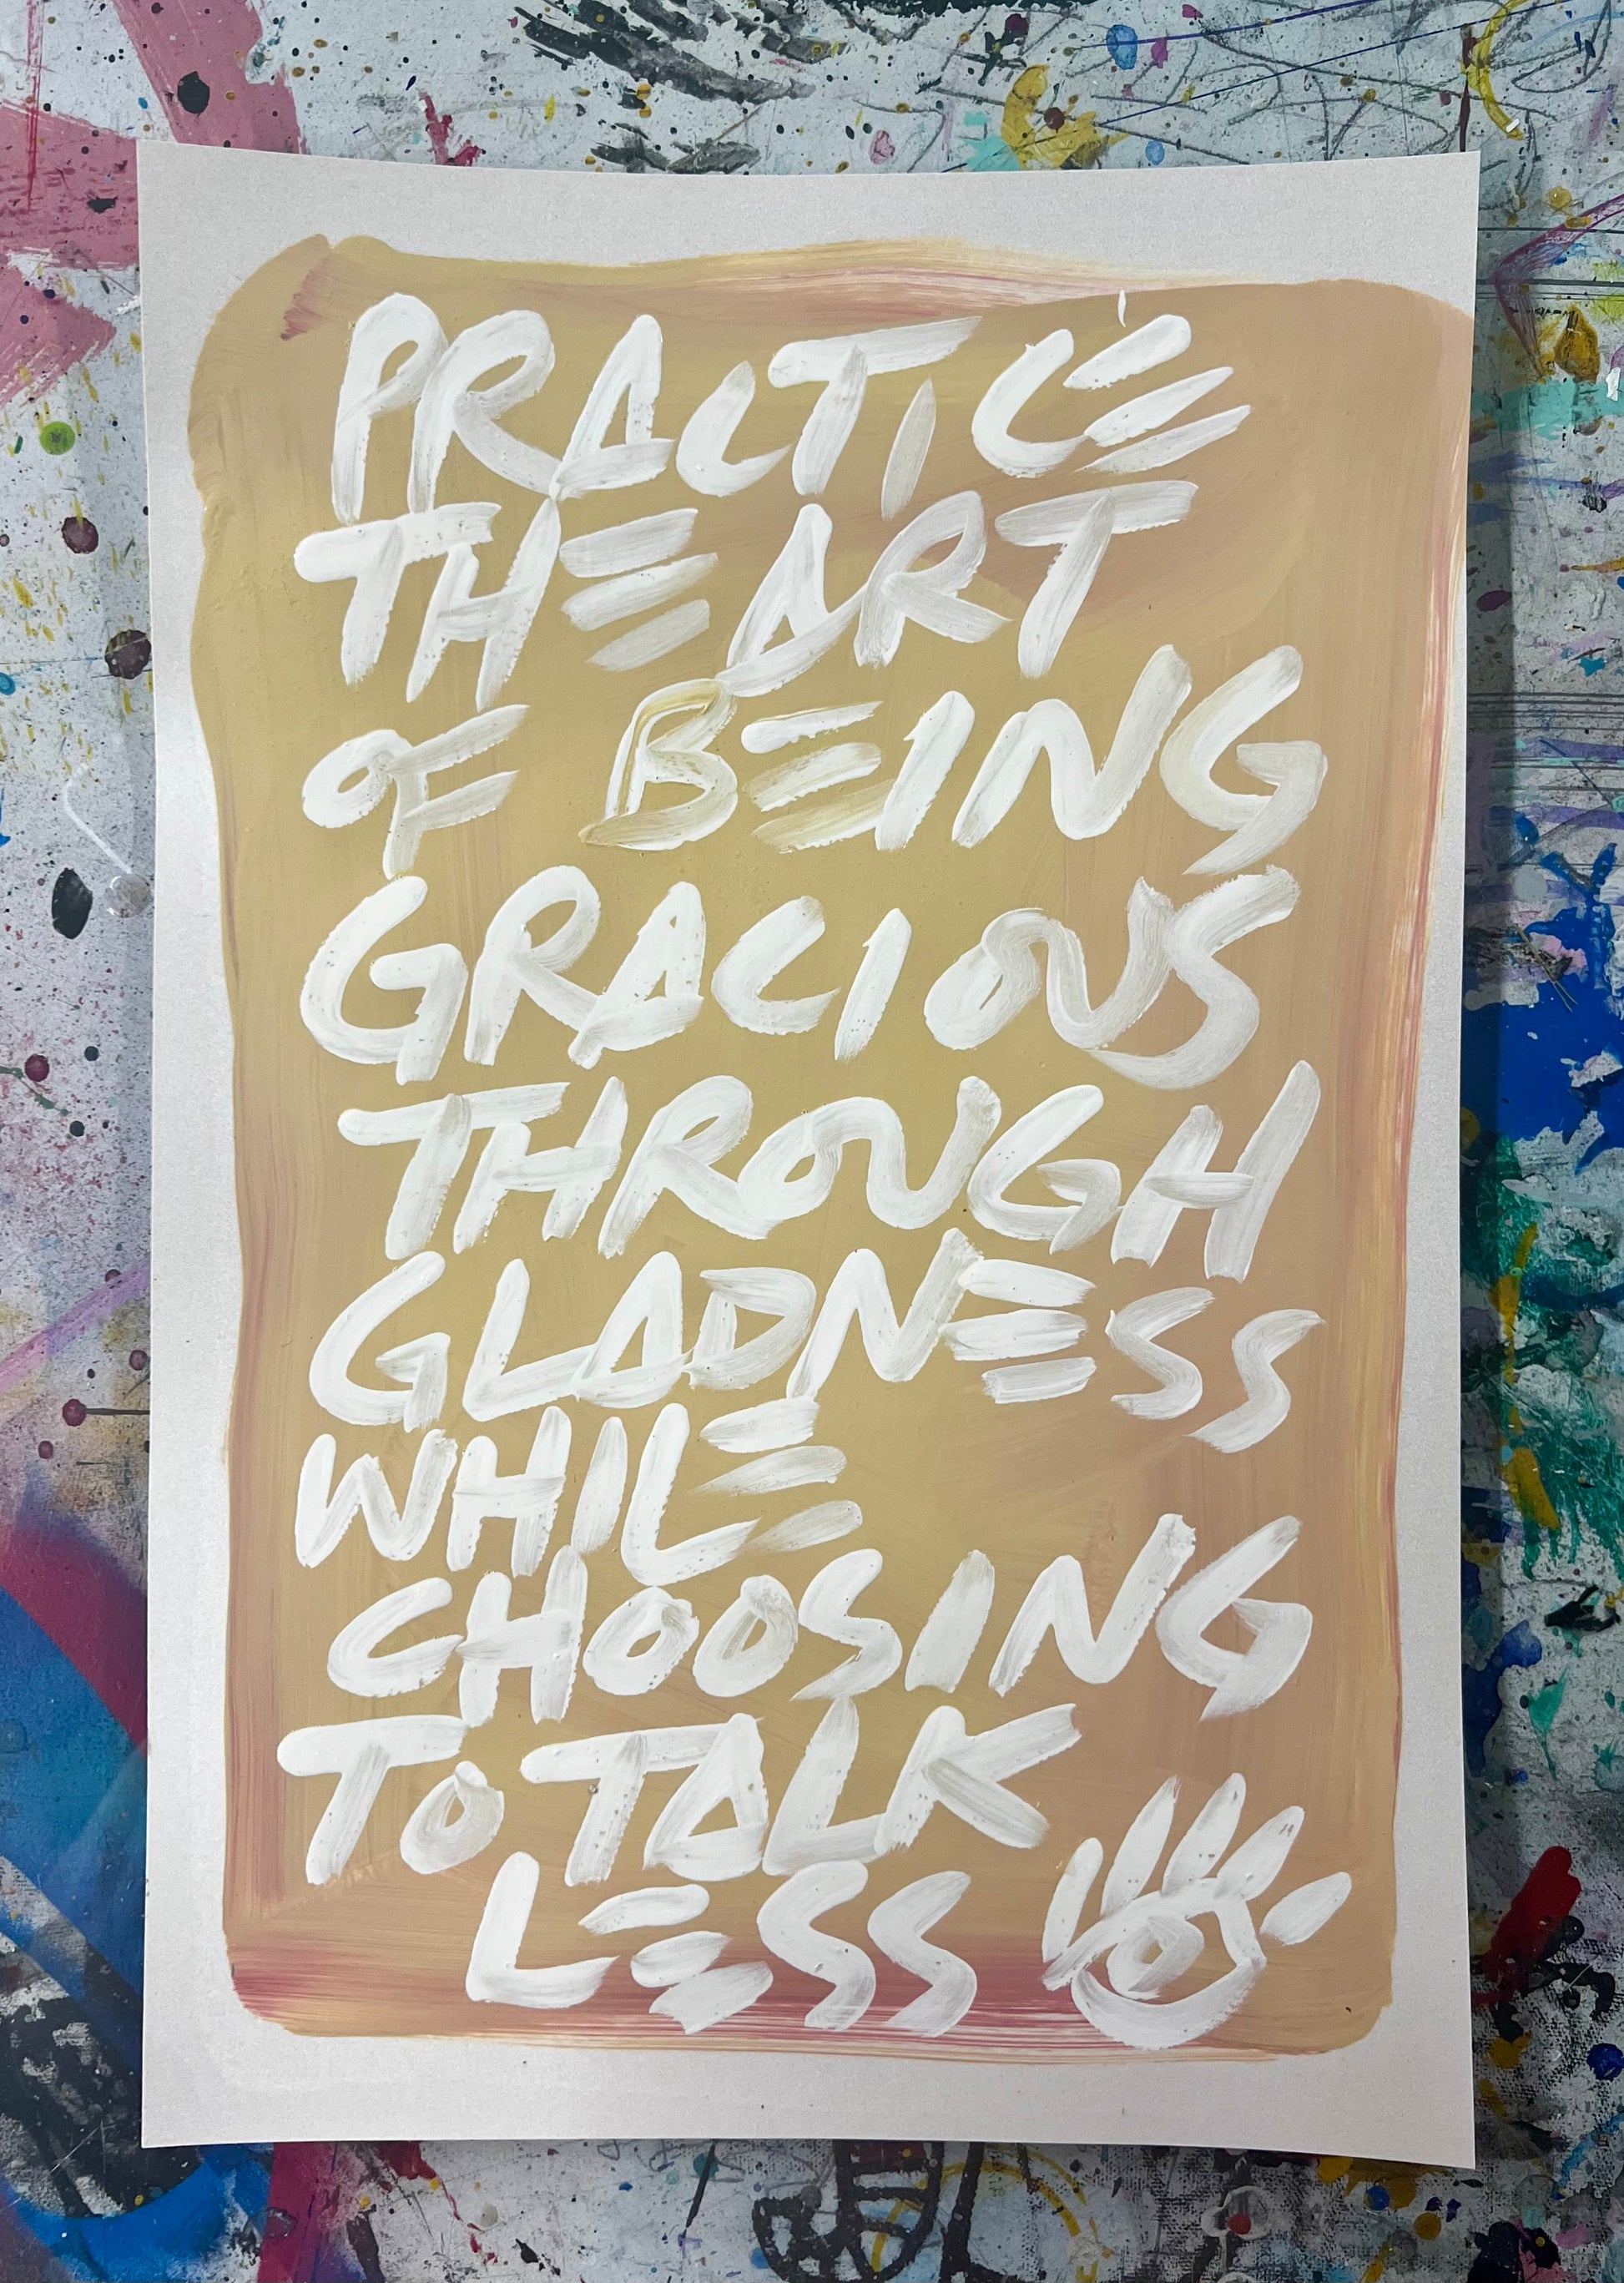 PRACTICE
THE ART
OF BEING
GRACIOUS
THROUGH
GLADNESS
WHILE
CHOOSING
TO TALK
LESS